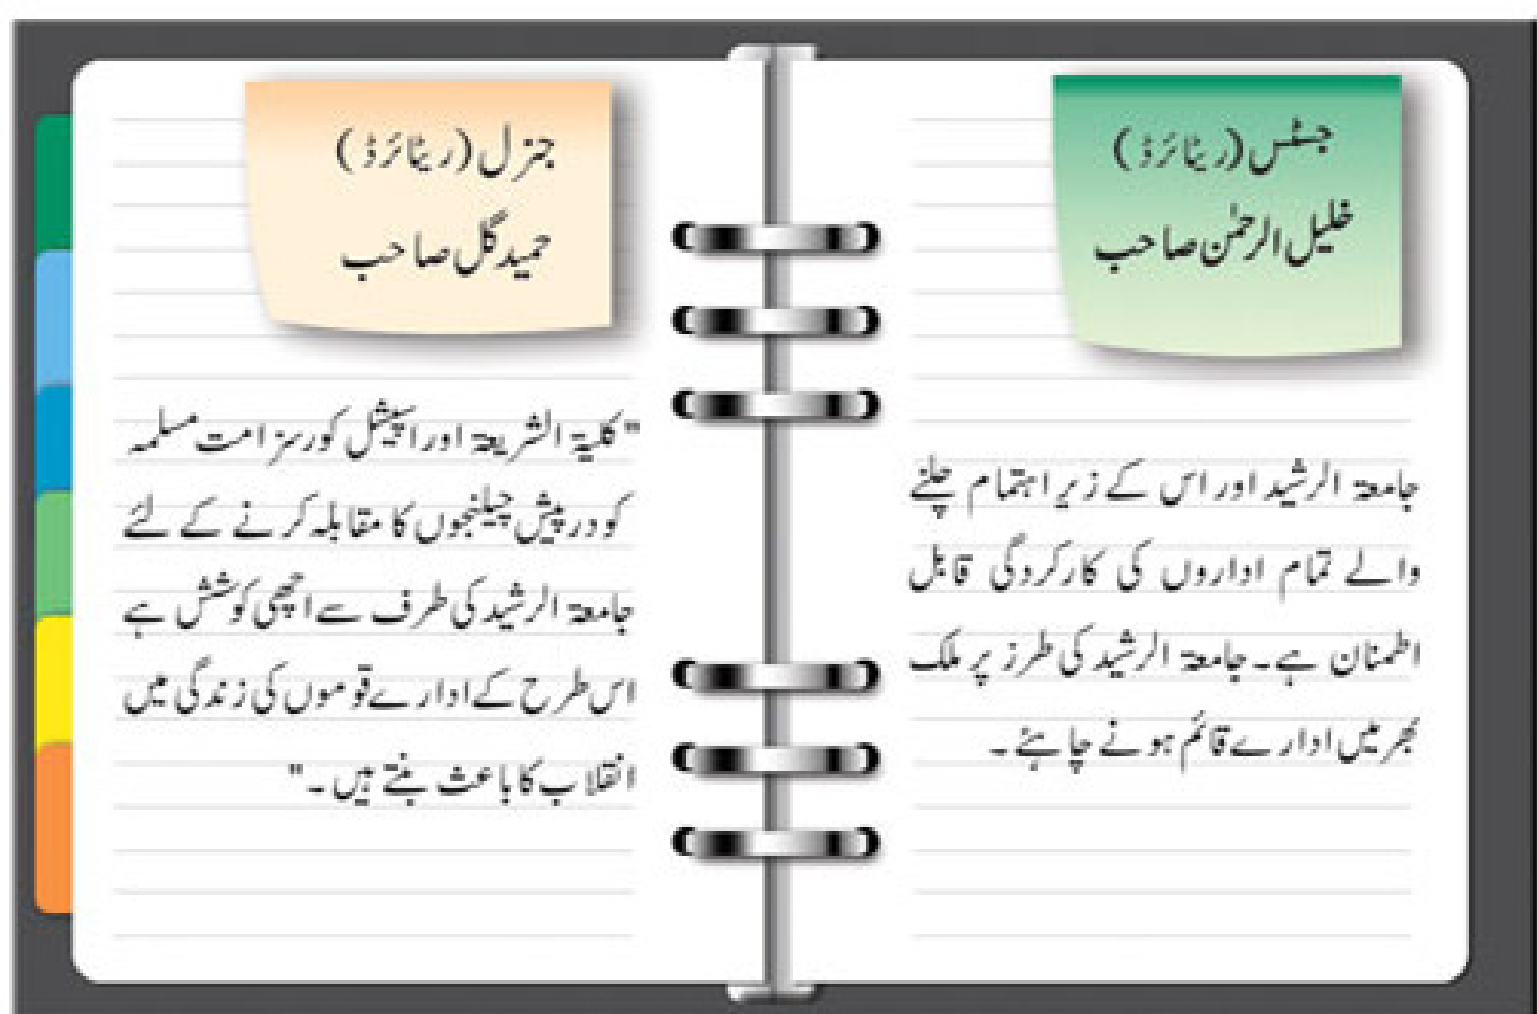 جسٹس (ریٹائرڈ)
خلیل الرحمٰن صاحب
جامعۃ الرشید اور اس کے زیر اہتمام چلنے
والے تمام اداروں کی کارکردگی قابل
اطمنان ہے۔ جامعۃ الرشید کی طرز پر ملک
بھر میں ادارے قائم ہونے چاہئے۔
جنرل (ریٹائرڈ)
حمید گل صاحب
"کلیۃ الشریعۃ اور اسپیشل کورسز امت مسلمہ
کو درپیش چیلنجوں کا مقابلہ کرنے کے لئے
جامعۃ الرشید کی طرف سے اچھی کوشش ہے
اس طرح کے ادارے قوموں کی زندگی میں
انقلاب کا باعث بنتے ہیں۔"